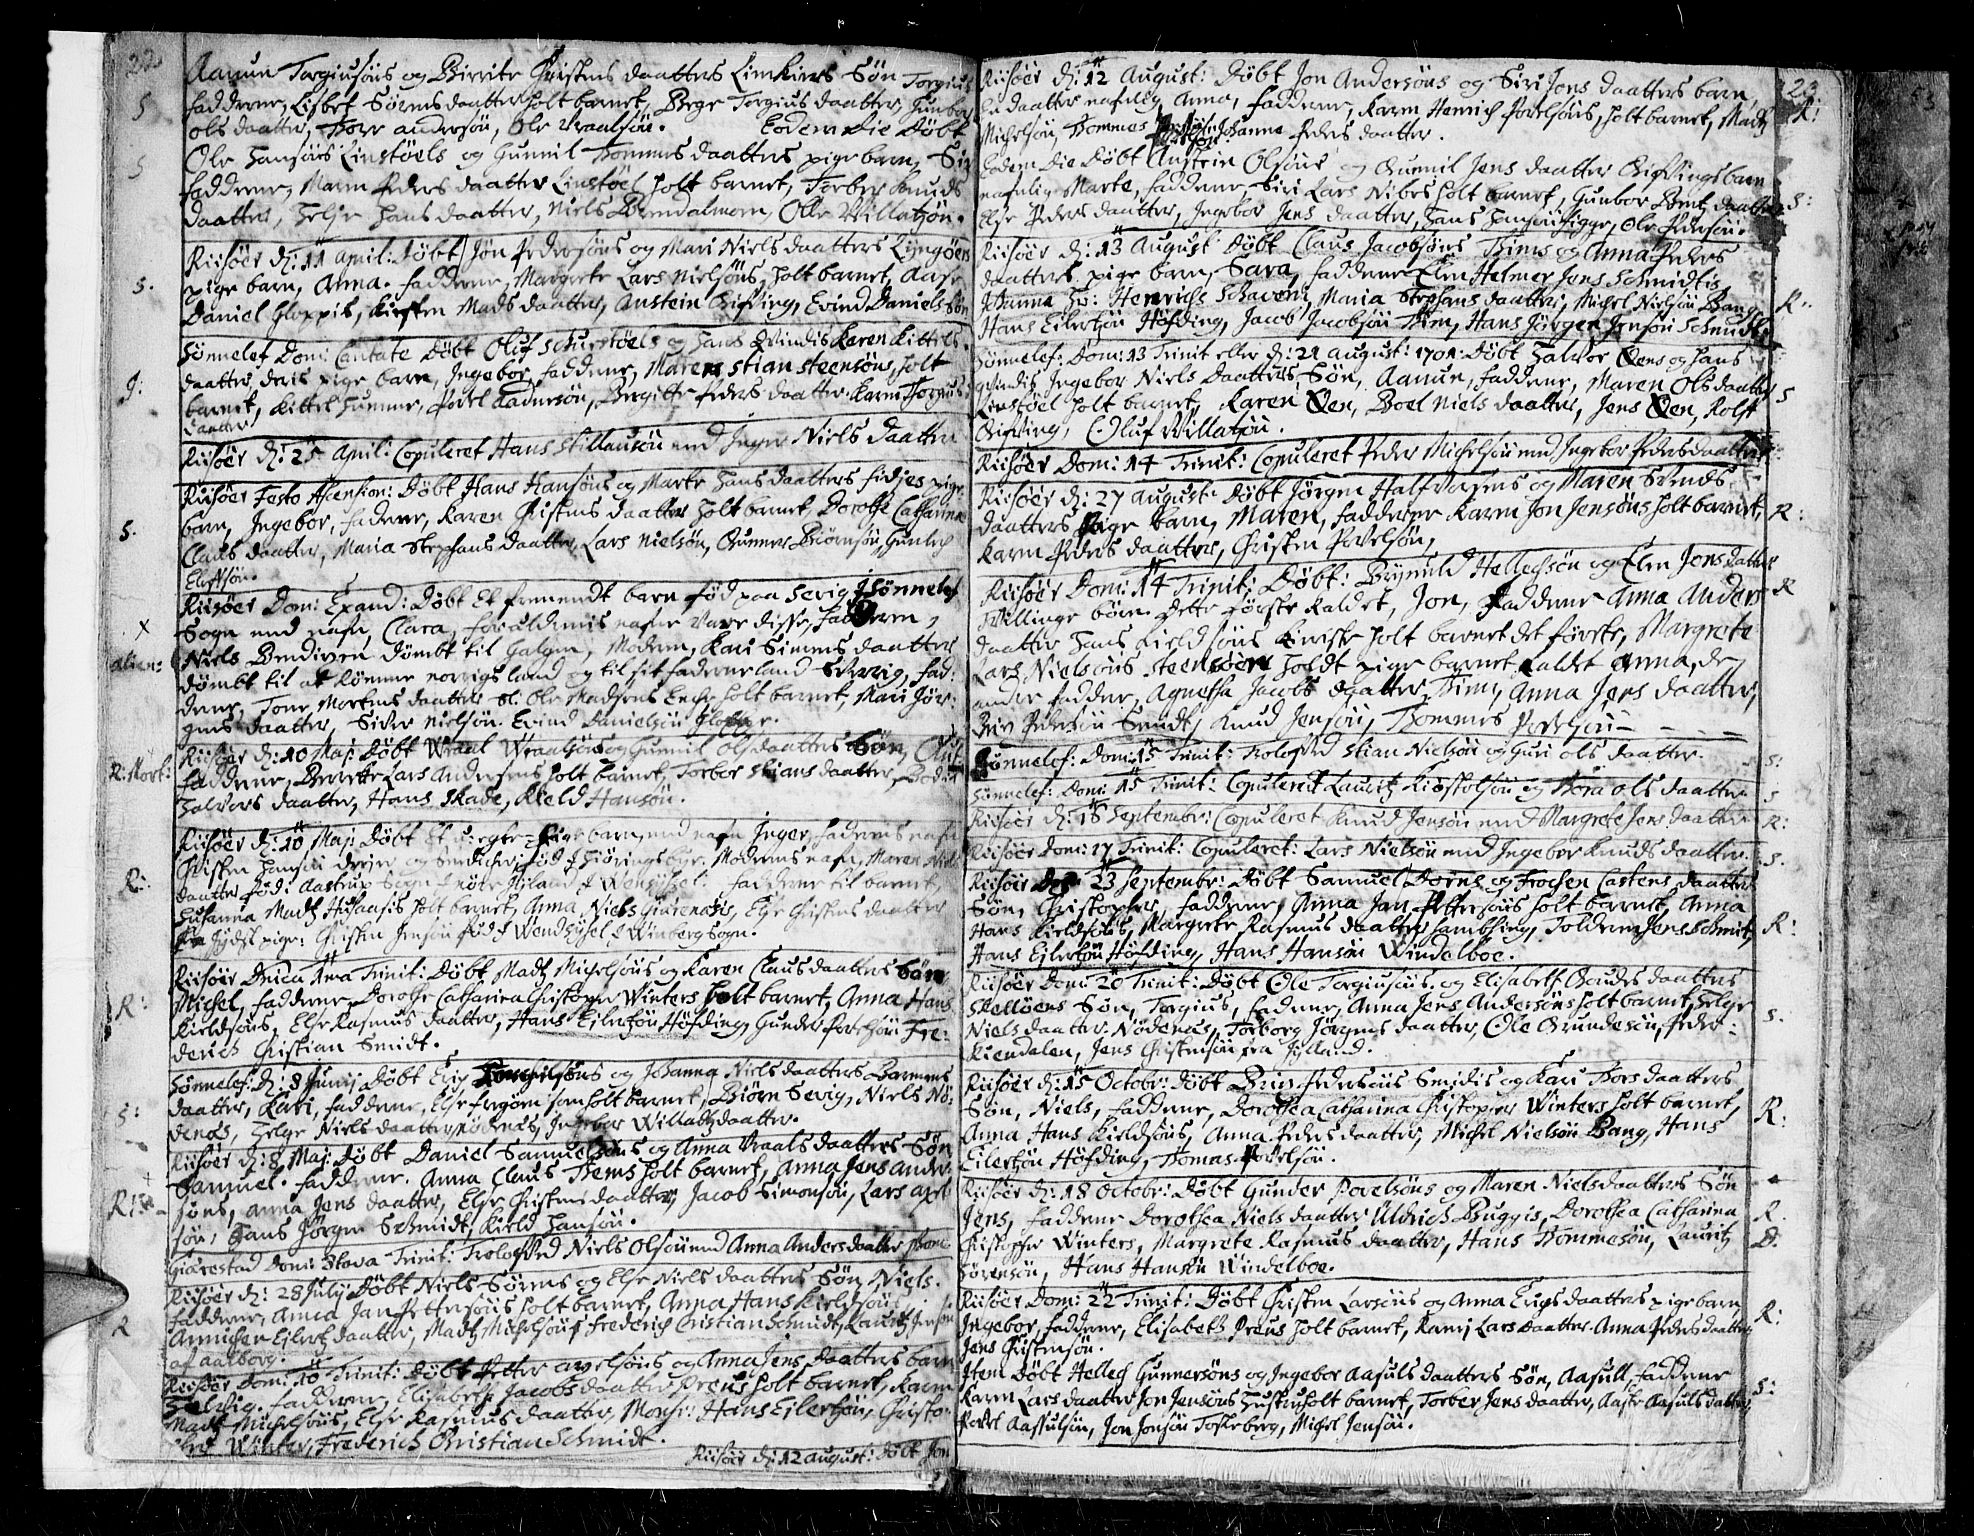 22
Aanun Torgiusöns og Birrite Christens daatters Limkiers Sön Torgius
5
faddrene, Lisbet Sörens daatter holt barnet, Berge Torgius daatter, Gunbor
ols daatter, Thore andersön, Ole Vraalsön. Eodem die Döbt
5
Ole Hansöns Linstöels og Gunnil Thommes daatters pige barn, Siri
faddrene, Maren Peders daatter Linstöel holt barnet, Torber Knuds
daatter, Helje Hans daatter, Niels Brendalmoen, Olle Willatzön.
Riisöer d: 11 April: Döbt Jon Pedersöns og Mari Niels daatters Lyngöers
5.
pige barn, Anna. faddrene, Margrete Lars Nielsöns, holt barnet, Aase
Daniel Gloppis, Kirsten Mads daatter, Anstein Gifving, Evind Daniels Sön
Sönnelef Dom: Cantate Döbt Oluf Schurstöels og Hans Qvindis Karen Kittels
daatter, deris pige barn, Ingebor, faddrene, Maren Stian Steensöns, holt
barnet, Kittel Hummer, Povel Aadensön, Birgitte Peders daatter Karen Thorgius
daatter
Riisöer d: 25 April: Copuleret Hans Stillaussön med Inger Niels daatter
Riisöer Festo Ascension: Döbt Hans Hansöns og Marte Hans daatters fidjes pige
5.
barn, Ingebor, fadrene, Karen Christens daatter holt barnet, Dorothe Catharina
Claus daatter, Maria Stephans daatter, Lars Nielsön, Gunner Biörnsön, Gunlech
Elefsön.
Riisöer Dom: Exaudi: Döbt Et fremmedt barn föd paa Serig i Sönnelef
x
Sogn med nafn, Clara, foraldernis nafne Vare disse, faderen,
alien:
Niels Bendixen dömbt til Galgen, Moderen, Kari Simens daatter
dömbt til at Römme norrigs land og til sit faderneland Sverrig, fad:
drene, Tone Mortens daatter Sl: Ole Madsens Encke holt barnet, Mari Jör:
gens daatter, Siver Nielsön. Evind Danielsön Glopper.
R: Mort:
Riisöer d: 10 Maj: Döbt Wraal Wraalsöns og Gunnil Ols daatters Sön, Oluf
faddrene, Berrette Lars Andersens holt barnet, Torbor Stians daatter, Bodil
Halvors daatter, Hans Skade, Kield Hansön.
Riisöer d: 10 Maj: Döbt Et u-egte pige barn, med nafn Inger, faderens nafn
Christen Hansön dreier og Snedicher föd i Hiöringsbye. Moderens nafn, Maren Niels
R:
daatter föd i Aastrup Sogn i nörre Jylland i Wensyssel: faddrene til barnet,
Susanna Madtz Husaasis holt barnet, Anna Niels Giurenasis, Else Christens daatter
En Jydsk pige: Christen Jensön föd i Wendsysel i Winberg Sogn.
Riisöer Dnica 1ma Trinit: Döbt Madtz Michelsöns og Karen Claus daatters Sön
R:
Michel, faddrene, Dorothe Catharina Christopher Winters holt barnet, Anna Hans
Kieldsöns, Else Rasmus daatter, Hans Eilertzön Höfding, Gunder Povelsön Fre:
derich Christian Smidt.
Sönnelef: d: 8 Junij Döbt Erig Tommesöns og Johanna Niels daatters Barmens
5:
daatter, Kari, faddrene, Else fregöen som holt barnet, Biörn Sevig, Niels Nö,
denes, Helge Niels daatter, nödenes, Ingebor Willatz daatter.
Riisöer d: 8 Maj: Döbt Daniel Samuelsöns og Anna Vraals daatters Sön
Samuel. faddrene. Anna Claus Thems holt barnet, Anna Jens Ander
söns, anna Jens daatter, Else Christens daatter, Jacob Simonsön, Lars axel
sön, Hans Jörgen Schmidt, Kield Hansön.
Giærestad Dom: Octava Trinit: Trolofved Niels Olsön med Anna Anders daatter
Riisöer d: 28 July Döbt Niels Sörens og Else Niels daatters Sön, Niels.
faddrene, Anna Jan Pettersöns holt barnet, Anna Hans Kieldsöns,
R
Annichen Eilertz daatter, Madtz Michelsön, Frederich Christian Schmidt, Lauritz Jensön
af aalborg.
Riisöer Dom: 10 Trinit: Döbt Petter axelsöns og Anna Jens daatters barn
Solvig. faddrene, Elisabeth Jacobs daatter Preus holt barnet, Karen
Madtz Michelsöns, Else Rasmus daatter, Monsr: Hans Eilertzön, Christo-
pher Winter, Frederich Christian Schmidt.
Riisöer d: 12 august: Döbt Jon
23
Riisöer d: 12 August: Döbt Jon Andersöns og Siri Jons daatters barn
R:
En daatter nafnlig, Anna, faddrene, Karen Henrich Povelsöns, holt barnet, Madtz
Michelsön, Thommes Povelsön, Johanna Peders daatter.
Eodem Die Döbt Anstein Olsöns og Gunnil Jens daatter Gifvings barn
nafnlig Marte, faddrene, Siri Lars Nibes holt barnet, Gunbor Bent daatter
S:
Else Peders daatter, Ingebor Jens daatter, Hans Hansön figge, Ole Pedersön.
Riisöer d: 13 August Döbt Claus Jacobsöns Thims og Anna Peders
daatters pige barn, Sara, faddrene Elen Helmer Jens Schmidtis
Johanna Hr: Henrichs Schaveni, Maria Stephans daatter, Michel Nielsön Bang
R:
Hans Eilertzön Höfding, Jacob Jacobsön Thim, Hans Jörgen Jensön Schmidt
Sönnelef: Dom: 13 Trinit eller d: 21 august: 1701: Döbt Halvor Öens og Hans
qvindis Ingebor Niels Daatters Sön, Aanun, faddrene, Maren Ols daatter
S
Linstöel holt barnet, Karen Öen, Boel Niels daatter, Jens Öen, Rolf
Gifving, Oluf Willatzön.
Riisöer Dom: 14 Trinit: Copuleret Peder Michelsön med Ingebor Peders daatter
Riisöer d: 27 August: Döbt Jörgen Halfvarsens og Maren Svends
daatters Pige Barn, Maren, faddrene Karen Jon Jensöns holt barnet,
R:
Karen Peders daatter, Christen Povelsön,
Riisöer Dom: 14 Trinit: Döbt: Bryneld Hellechsön og Elen Jons datters
R
Willinge börn. dette förste kaldet, Jon, faddrene Anna Anders
daatter Hans Kieldsöns Kiriste holt barnet det förste, Margrete
Lars Nielsöns Steensöer holdt pige barnet kaldet Anna, de
andre faddre, Agnetha Jacobs daatter Thim, Anna Jens daatter,
Brix Pedersön Smidt, Knud Jensön, Thommes Povelsön
Sönnelef: Dom: 15 Trinit: Trolofved Stian Nielsön og Guri Ols daatter.
S:
Sönnelef: Dom: 15 Trinit: Copuleret Lauritz Kiöstolsön og Thora Ols daatter
S
Riisöer d: 16 September: Copuleret Knud Jensön med Margrete Jens daatter
R:
Riisöer Dom: 17 Trinit: Copuleret: Lars Nielsön med Ingebor Knuds daatter.
S.
Riisöer d: 23 Septembr: Döbt Samuel Dörns og Trochen Castens daatters
Sön, Christopher, faddrene, Anna Jan Pettersöns holt barnet, Anna
Hans Kieldsöns, Margrete Rasmus daatter Sambsing, Tolderen Jens Schmit,
R:
Hans Eilertzön Höfding, Hans Hansön Windelboe.
Riisöer Dom: 20 Trinit: Döbt Ole Torgiusöns. og Elisabeth Gaudes daatters
Skellöens Sön, Torgius, fadrene, Anna Jens Andersöns holt barnet, Helge
S.
Niels daatter Nödenes, Torborg Jörgens daatter, Ole Grundesön, Peder
Kiendalen, Jens Christensön fra Jylland.
Riisöer d: 15 Octobr: Döbt Brix Pedersöns Smidis og Kari Thors daatters
Sön, Niels, faddrene, Dorothea Catharina Christopher Winters holt barnet,
R:
Anna Hans Kieldsöns, Anna Peders daatter, Michel Nielsön Bang, Hans
Eilertzön Höfding, Thomas Povelsön.
Riisöer d: 18 Octobr: Döbt Gunder Povelsöns og Maren Niels daatters Sön
Jens, faddrene Dorothea Niels daatter Uldrich Buggis, Dorothea Catharina
R.
Christopher Winters, Margrete Rasmus daatter, Hans Thommesön, Lauritz
D.
Sörensön, Hans Hansön Windelboe.
Riisöer Dom: 22 Trinit: Döbt Christen Larsöns og Anna Erigs daatters pige barn
R:
Ingebor, faddrene, Elisabeth Preus holt barnet, Karen Lars daatter Anna Peders daatter
Jens Christensön.
Item Döbt Hellech Gunnersöns og Ingebor Aasuls daatters Sön, Aasull, faddrene
S:
Karen Lars daatter Jon Jensöns Hustru holt barnet, Torber Jens daatter, Aaste Aasuls datter,
Povel Aassulsön, Jon Jonsön Toskeberg, Michel Jensön.